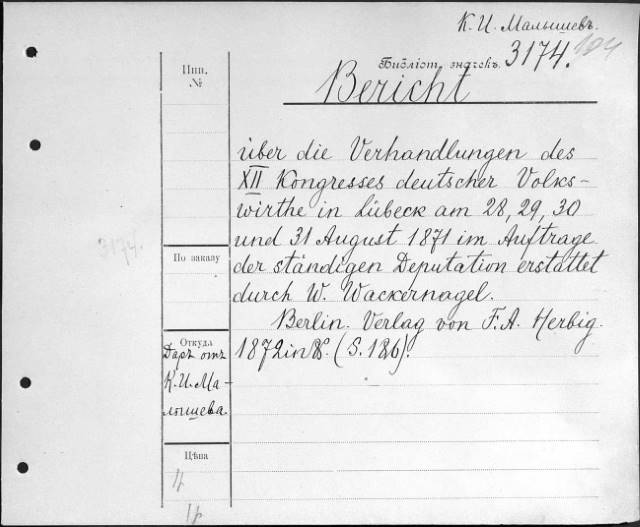 К. И. Малышевъ.
Библіот. значекъ. 3174. 194
Инв.
№
Bericht
über die Verhandlungen des
XII Kongresses deutscher Volks-
wirthe in Lübeck am 28, 29, 30
und 31 August 1871 im Auftrage
der ständigen Deputation erstattet
durch W. Wackernagel.
Berlin. Verlag von F. A. Herbig.
1872 in 8°. (S. 186).
3174.
По заказу
Откуда
Даръ отъ
К. И. Ма-
лышева
Цѣна